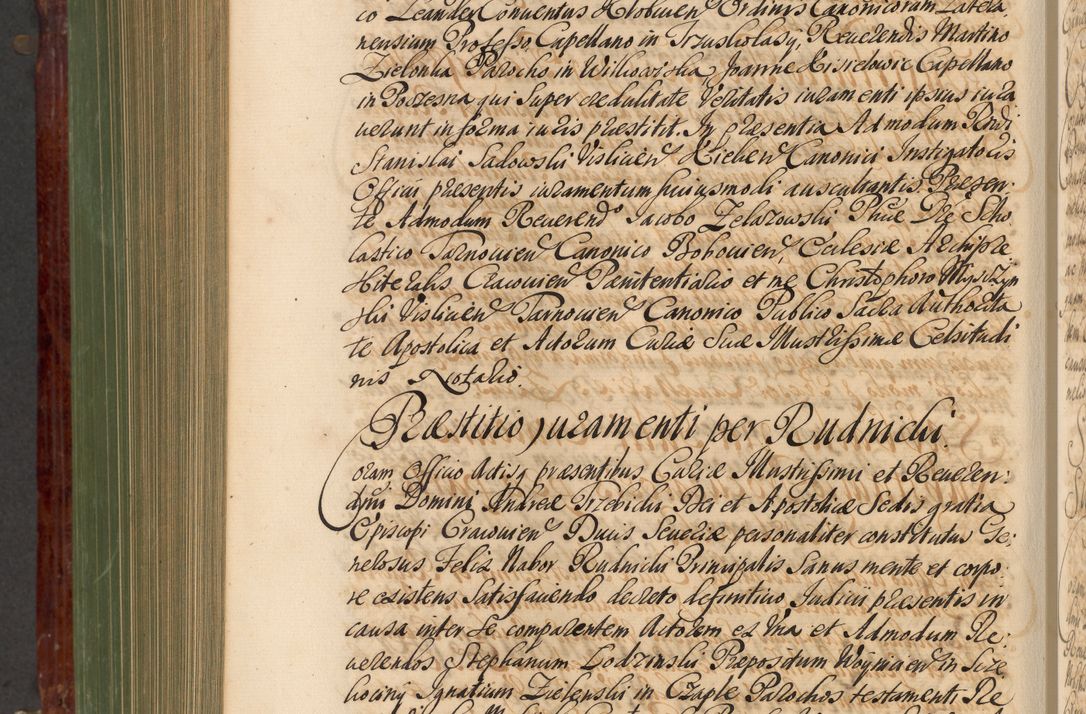 co Leander Conuentus Klobucen Ordinis Canonicorum Latera
nensium Professo, Capellano in Trzuskolasy, Reuerendis Martino
Zielonka Parocho in Wilkowiska Joanne Kisielowic Capellano
in Poczesna qui super credulitate Veritatis iuramenti ipsius iura
uerunt in forma iuris præstitit. In præsentia Admodum Rndi
Stanislai Sadowski Vislicien Kielcen Canonici Instigatoris
Officii præsentis iuramentum huiusmodi auscultantis. Præsen:
te Admodum Reuerendo Jacobo Zelazowski Phiæ Dre Scho
lastico Tarnouien Canonico Bobouien, Ecclesiæ Archipre
sbiteralis Cracouien Pænitentiario et me Christophoro Myszyn
ski Vislicien Tarnouien Canonico Publico Sacra Authorita
te Apostolica et Actorum Curiæ Suæ Illustrissimæ Celsitudi
nis Notario.
Præstitio juramenti per Rudnicki.
oram Officio Actisq præsentibus Curiæ Illustrissimi et Reueren:
dmi Domini Andreæ Trzebicki Dei et Apostolicæ Sedis gratia
Episcopi Cracouien Ducis Seueriæ personaliter constitutus Ge:
nerosus Felix Nabor Rudnicki Principalis sanus mente et corpo
re existens satisfaciendo decreto definitiuo Judicii præsentis in
causa inter se comparentem Actorem ex Vna et Admodum Re:
uerendos Stephanum Lodzinski Præpositum Woynicien in Scze
kociny Ignatium Zielenski in Czaple Parochos testamenti Re